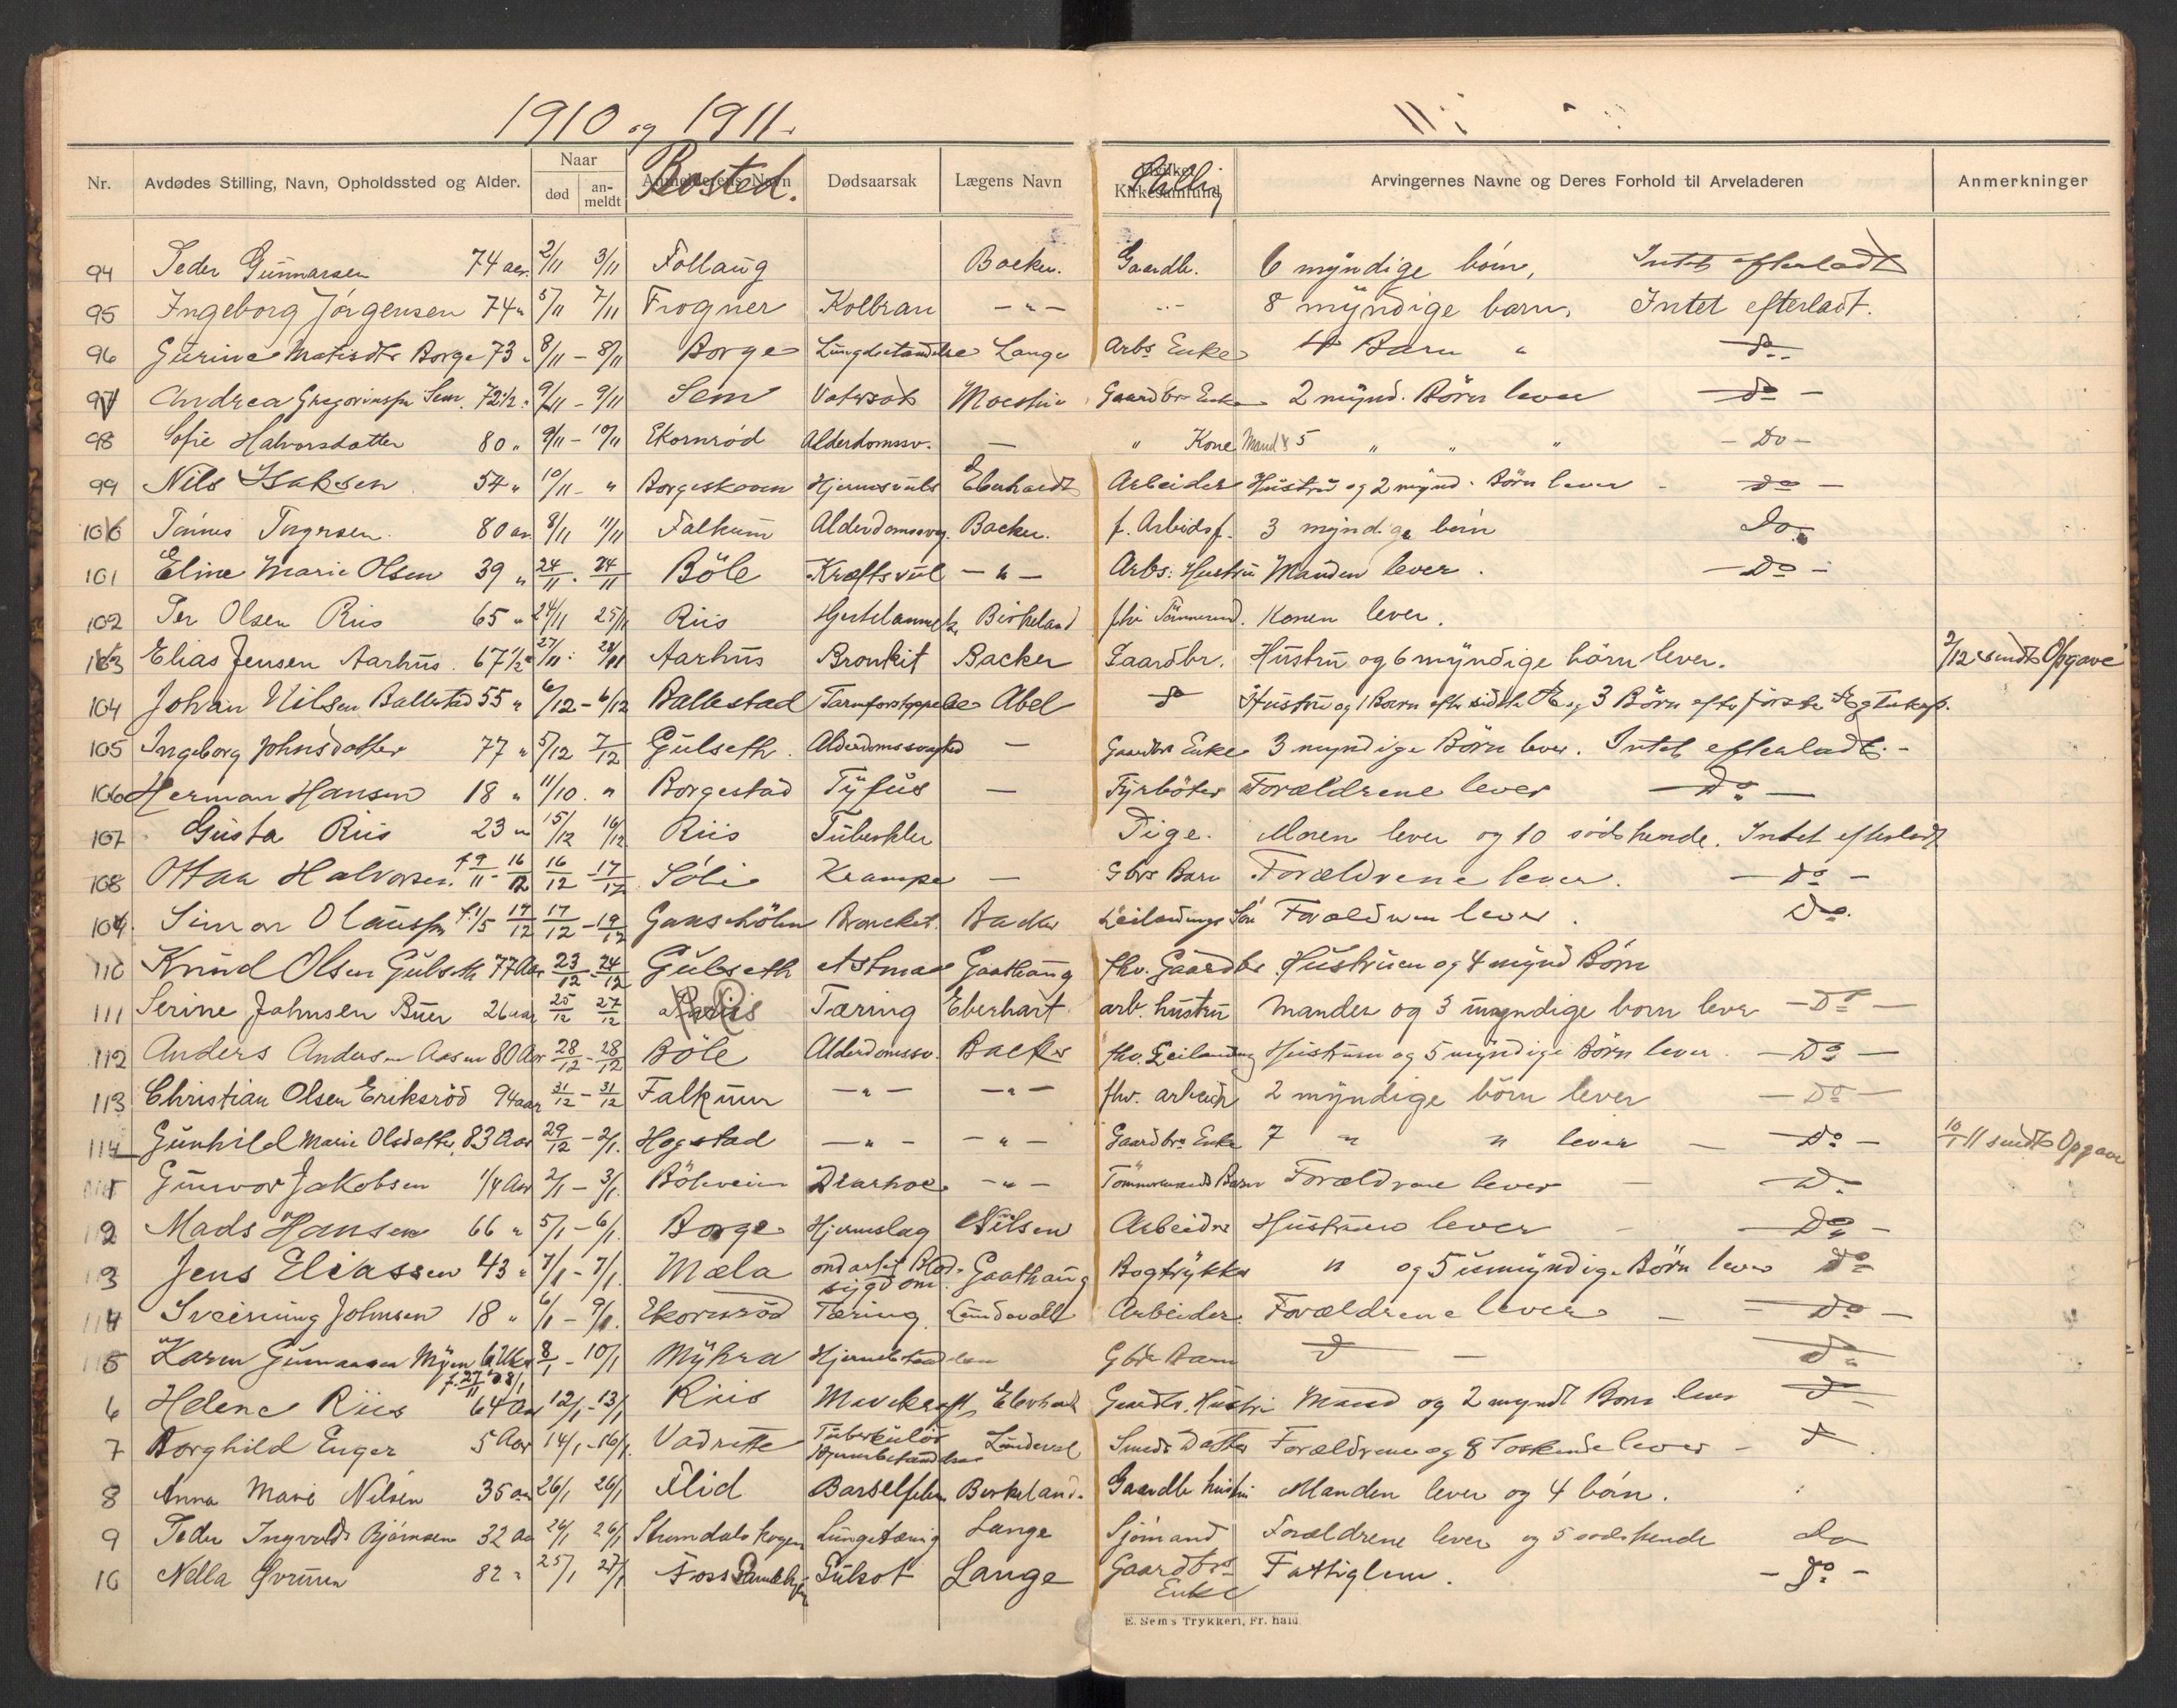 1910 og 1911.
Nr. Avdødes Stilling, Navn, Opholdssted og Alder. Naar død an-meldt Anmelderens Navn Bosted. Dødsaarsak Lægens Navn Hvilket Kirkesamfund Stillig Arvingernes Navne og Deres Forhold til Arveladeren Anmerkninger
94 Peder Gunnarsen 74 aar. 2/11 3/11 Follaug Backer. Gaardb. 6 myndige börn, Intet efterladt
95 Ingeborg Jörgensen 74 " 5/11 7/11 Frogner Kolbran - " - 8 myndige barn. Intet efterladt.
96 Gurine Borge 73 " 8/11 - 8/11 Borge Lange Arbs Enke 4 Barn " Do
97 Andrea Sem 72 1/2 " 9/11 - 9/11 Sem Vatersot Gaardbr Enke 2 mynd. Börn lever Do -
98 Sofie Halvorsdatter 80 " 9/11 - 10/11 Ekornröd Alderdomssv. - " Kone Mand & 5 " " " - Do -
99 Nils Isaksen 54 " 10/11 - " Borgeskoven Eberhardt Arbeider Hustru og 2 mynd. Börn lever - Do -
100 80 aar 8/11 11/11 Falkum Backer. f. Arbeidsf. 3 myndige börn Do
101 Eline Marie Olsen 39 " 24/11 - 24/11 Böle - " - Arbs: Hustru Manden lever. - Do -
102 Per Olsen Riis 65 " 24/11 25/11 Riis Birkeland Konen lever.
103 Elias Jensen Aarhus. 67 1/2 " 27/11 28/11 Aarhus Bronkit Backer Gaardbr. Hustru og 6 myndige börn lever. 2/12 sendt Opgave
104 Johan Nilsen Ballestad 55 " 6/12 - 6/12 Ballestad Tarmforstoppelse Abel Do Hustru og 1 Barn efter sidste Æ og 3 Börn efter förste Ægteskap.
105 Ingeborg Johnsdatter 77 " 5/12 7/12 Gulseth. - Gaardbrs Enke 3 myndige Börn lever. Intet efterladt. -
106 Herman Hansen 18 " 11/10. " Borgestad Tyfus - Fyrböter Forældrene lever Do -
107 Gusta Riis 23 " 15/12 16/12 Riis Pige. Moren lever og 10 södskende. Intet efterladt
108 Halvorsen. f. 9/11 - 16/12 16/12 - 17/12 Krampe - Gbrs Barn Forældrene lever. - Do -
109. Simon f. 1/5 17/12 17/12 - 19/12 Backer Leilændings Sön Forældrene lever. Do.
110 Knud Olsen Gulseth 77 Aar 23/12 - 24/12 Gulseth Astma Gaathaug fhv. Gaardbr Hustruen og 4 mynd Börn
111 Serine Johnsen Buer 26 aar 25/12 27/12 Tæring Eberhart. arb. hustru Manden og 3 umyndige born lever - Do -
112 Anders Andersen 80 Aar 28/12 - 28/12 Böle Alderdomssv. Backer fhv. Leilænding Hustruen og 5 myndige Börn lever. - Do -
113 Christian Olsen Eriksröd 94 aar 31/12 - 31/12 Falkum - " - - " - fhv. arbeider 2 myndige börn lever - Do -
114 Gunhild Marie Olsdatter, 83 Aar 29/12 - 2/1. Hogstad - " - - " - Gaardbrs Enke 7 " " lever - Do - 10/1 11 sendt Opgave
1 Gunvor Jakobsen 1/4 Aar 2/1 - 3/1. Böleveien - " - Tömmermands Barn Forældrene lever - Do
2 Mads Hansen 66 " 5/1 - 6/1. Borge Hjerneslag Nilsen Arbeider Hustruen lever - Do -
3 Jens Eliassen 43 " 7/1 - 7/1. Mæla ondartet Blod-sygdom. Gaathaug Bogtrykker " og 5 umyndige Börn lever Do
4 Sveinung Johnsen 18 " 6/1 - 9/1. Ekornröd Tæring. Arbeider. Forældrene lever - Do -
5 Karen Gunnarsen Myren 6 Uker f. 27/11 8/1 - 10/1 Myhra Gbr Barn Do - Do
6 Helene Riis 64 Aar 12/1 - 13/1 Riis Gaardbr. Hustru Mand og 2 myndl Born lever Do
7 Borghild Enger 5 Aar 14/1 - 16/1. Vadrette Tuberkulös Hjernebetændelse Smeds Datter Forældrene og 8 Soskende lever - Do.
8 Anna Marie Nilsen 35 aar 26/1 26/1 Flid Birkeland. Gaardb hustru Manden lever og 4 börn.
9 Peder Björnsen 32 Aar 26/1 26/1 Lungetæring Lange Sjömand Forældrene lever og 5 södskende do
10 Nella 82 " 25/1 27/1 Foss Lange Gaardbrs Enke Fattiglem. - Do -
E. Sem's Trykkeri, Fr.hald